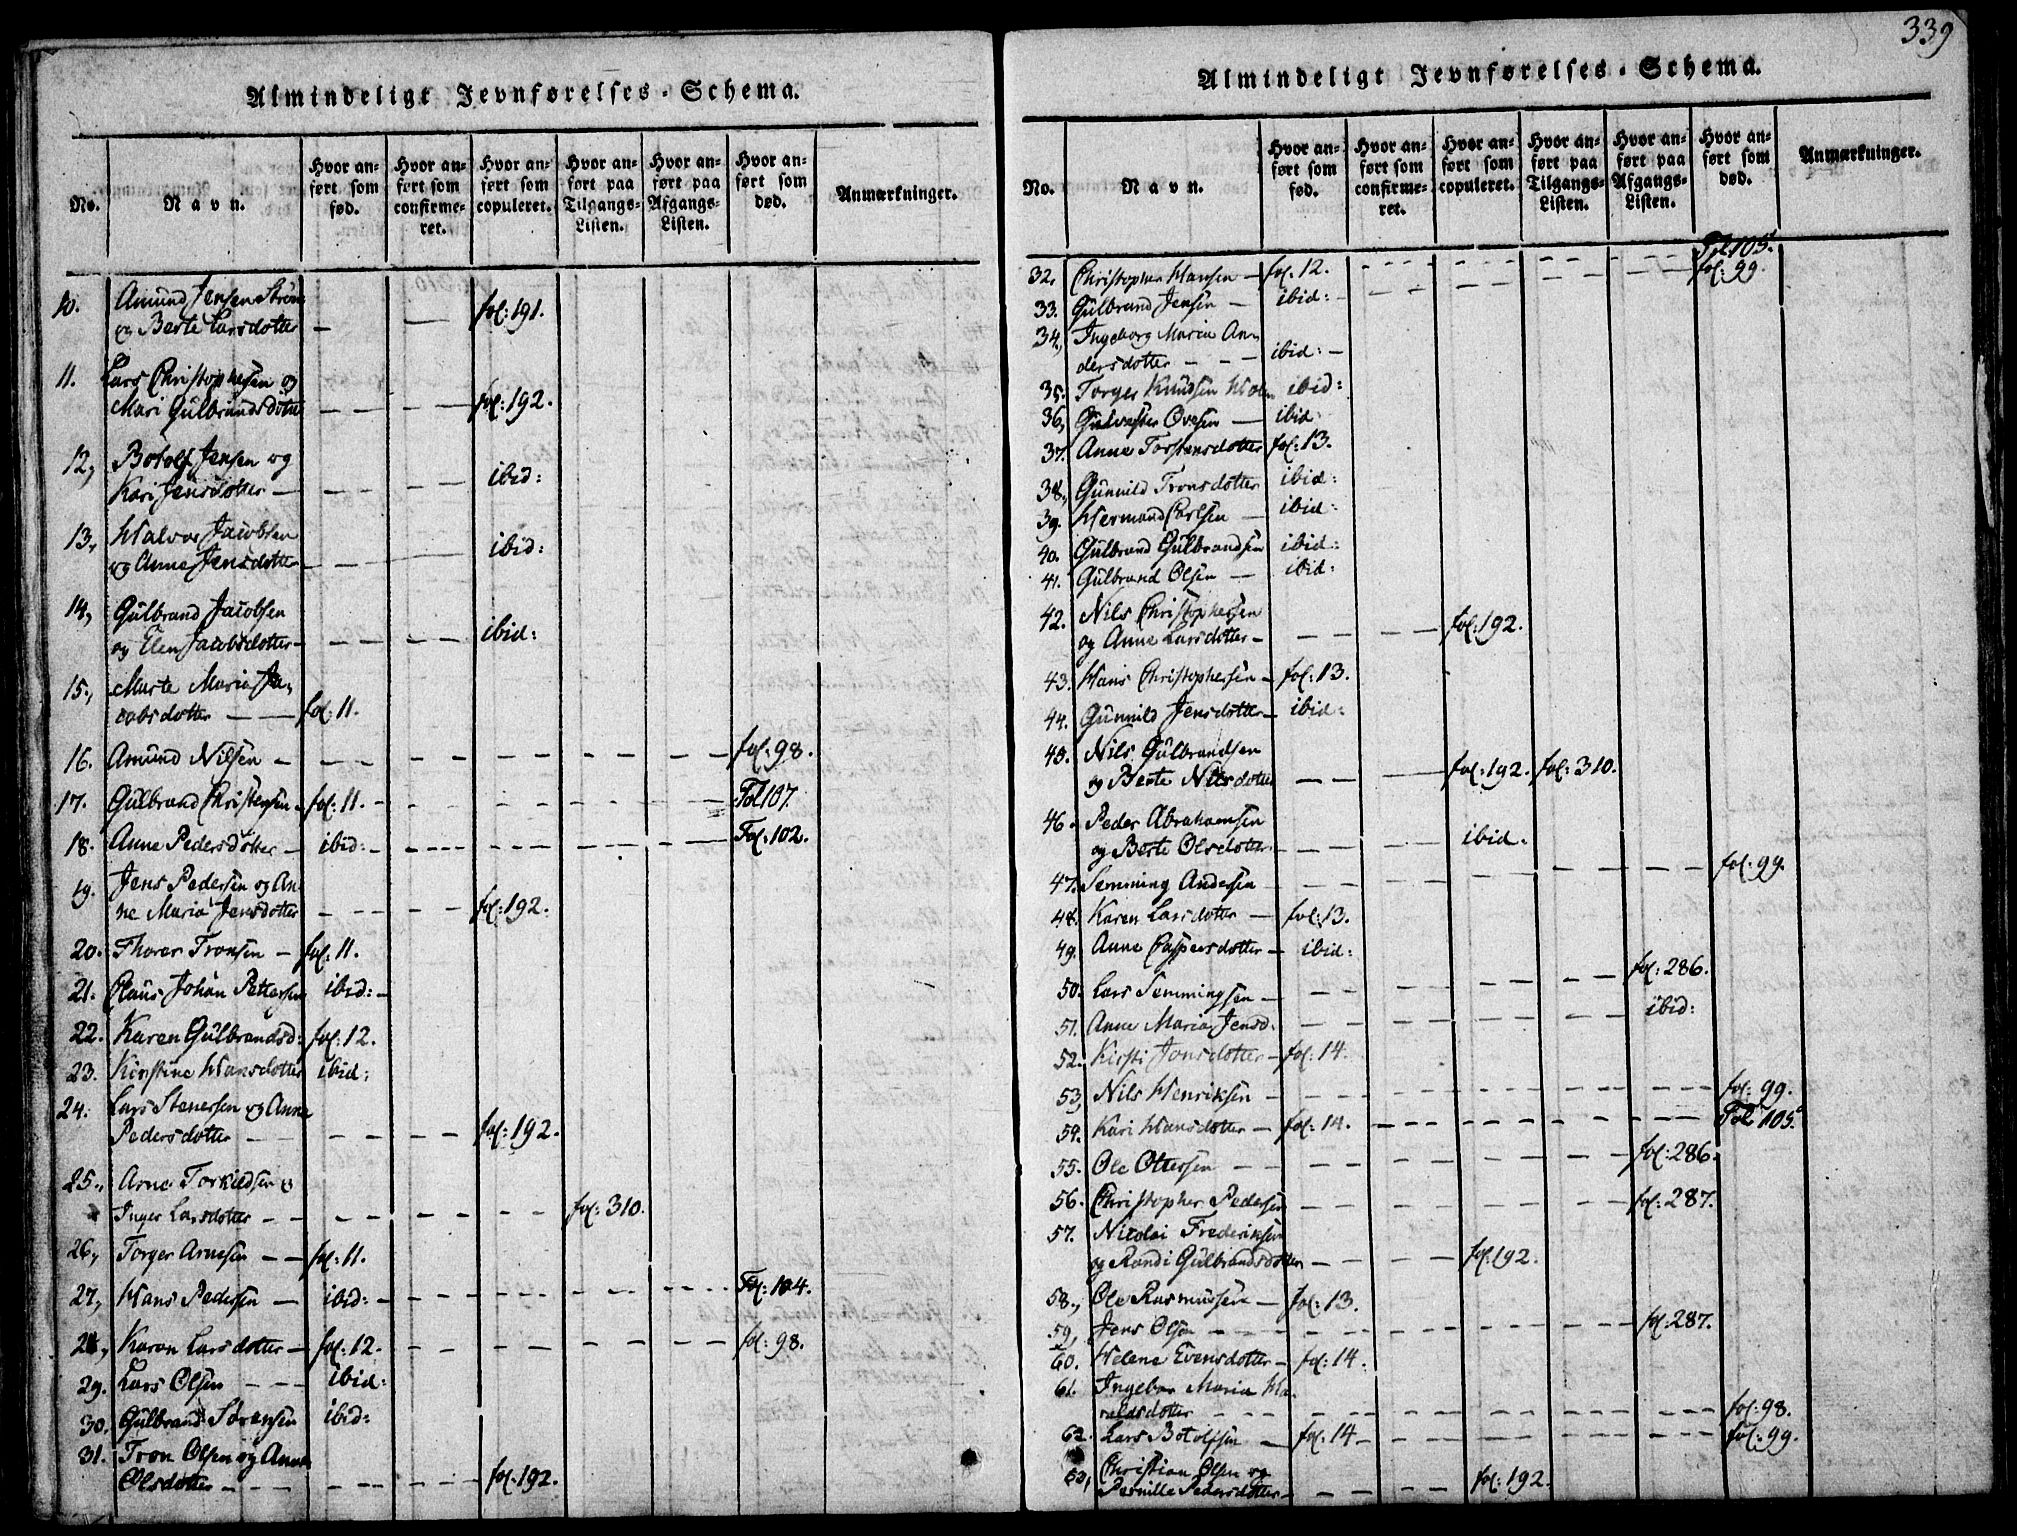 339
Almindeligt Jevnførelses-Schema.
No. Navn. Hvor anført som fød. Hvor anført som confirmeret. Hvor anført som copuleret. Hvor anført paa Tilgangs-Listen. Hvor anført paa Afgangs-Listen. Hvor anført som død. Anmærkninger.
10. Amund Jensen Strøm
og Berte Larsdotter — — fol: 191.
11. Lars Christophersen og
Mari Gülbrandsdotter — — — — fol: 192.
12, Botolf Jensen og
Kari Jensdotter — — — — ibid:
13, Halvor Jacobsen
og Anne Jensdotter — — — ibid:
14, Gülbrand Jacobsen
og Elen Jacobsdotter — — — — ibid:
15, Marte Maria Ja-
cobsdotter — — fol: 11.
16. Amünd Nilsen — — — — — — — — fol: 98.
17. Gülbrand Christensen — fol: 11. - - - - - - - - Fol 107.
18. Anne Pedersdotter — ibid: — - - - - - - - — Fol. 102.
19. Jens Pedersen og An-
ne Maria Jensdotter — — — — fol: 192.
20. Thorer Tronsen — fol: 11.
21. Claus Johan Pettersen ibid: —
22. Karen Gülbrandsd: fol: 12.
23. Kirstine Hansdotter ibid:
24. Lars Stenersen og Anne
Pedersdotter — — — — — fol: 192.
25, Arne Torkildsen og
Inger Larsdotter — — — — — — — fol: 310.
26, Torger Arnesen — — fol: 11.
27, Hans Pedersen — ibid: — - - - - - - - - Fol: 104.
28, Karen Larsdotter — fol: 12. — — — — — — — fol: 98.
29. Lars Olsen — — — ibid:
30. Gülbrand Sørensen ibid:
31. Tron Olsen og Anne
Olsdotter — — — — — — fol: 192.
Almindeligt Jevnførelses-Schema.
No. Navn. Hvor anført som fød. Hvor anført som confirmeret. Hvor anført som copuleret. Hvor anført paa Tilgangs-Listen. Hvor anført paa Afgangs-Listen. Hvor anført som død. Anmærkninger.
32. Christopher Hansen — fol. 12. - - - - - - - - Fol 105.
33. Gülbrand Jensen — ibid: — — — — — — — — fol: 99.
34, Ingeborg Maria An-
dersdotter — — — ibid: —
35. Torger Knudsen ibid:
36, Ovesen — ibid
37. Anne Torstensdotter fol: 13.
38, Gunnild Tronsdotter ibid:
39. Hermand Carlsen — ibid:
40. Gülbrand Gülbrandsen ibid:
41. Gülbrand Olsen — ibid:
42. Nils Christophersen
og Anne Larsdotter — — — — — fol: 192.
43. Hans Christophersen — fol: 13.
44. Gunnild Jensdotter — ibid:
45. Nils Gülbrandsen
og Berte Nilsdotter — — — — fol: 192. fol: 310.
46. Peder Abrahamsen
og Berte Olsdotter. — — — — ibid.
47. Semming Andersen — — — — — — — — — fol: 99.
48. Karen Larsdotter — fol: 13.
49. Anne Caspersdotter — ibid:
50. Lars Semmingsen — — — — — — — — fol: 286.
51. Anne Maria Jensd: — — — — — — — — ibid:
52. Kirsti Jonsdotter — fol: 14.
53, Nils Henriksen — — — — — — — — — fol: 99.
54. Kari Hansdotter — fol: 14. — — — — — — — — Fol 105.
55. Ole Ottersen — — — — — — — — — fol: 286.
56. Christopher Pedersen — — — — — — — — fol: 287.
57. Nicolai Frederiksen
og Randi Gülbrandsdotter — — — — fol: 192.
58, Ole Rasmussen — fol: 13.
59, Jens Olsen — — — — — — — — — — fol: 287.
60. Helene Evensdotter — fol: 14.
61. Ingebor Maria Ha-
raldsdotter — — — — — — — — — fol: 98.
62. Lars Botolfsen — fol: 14 — — — — — — — — fol: 99.
63, Christian Olsen og
Pernille Pedersdotter — — — — — fol: 192.